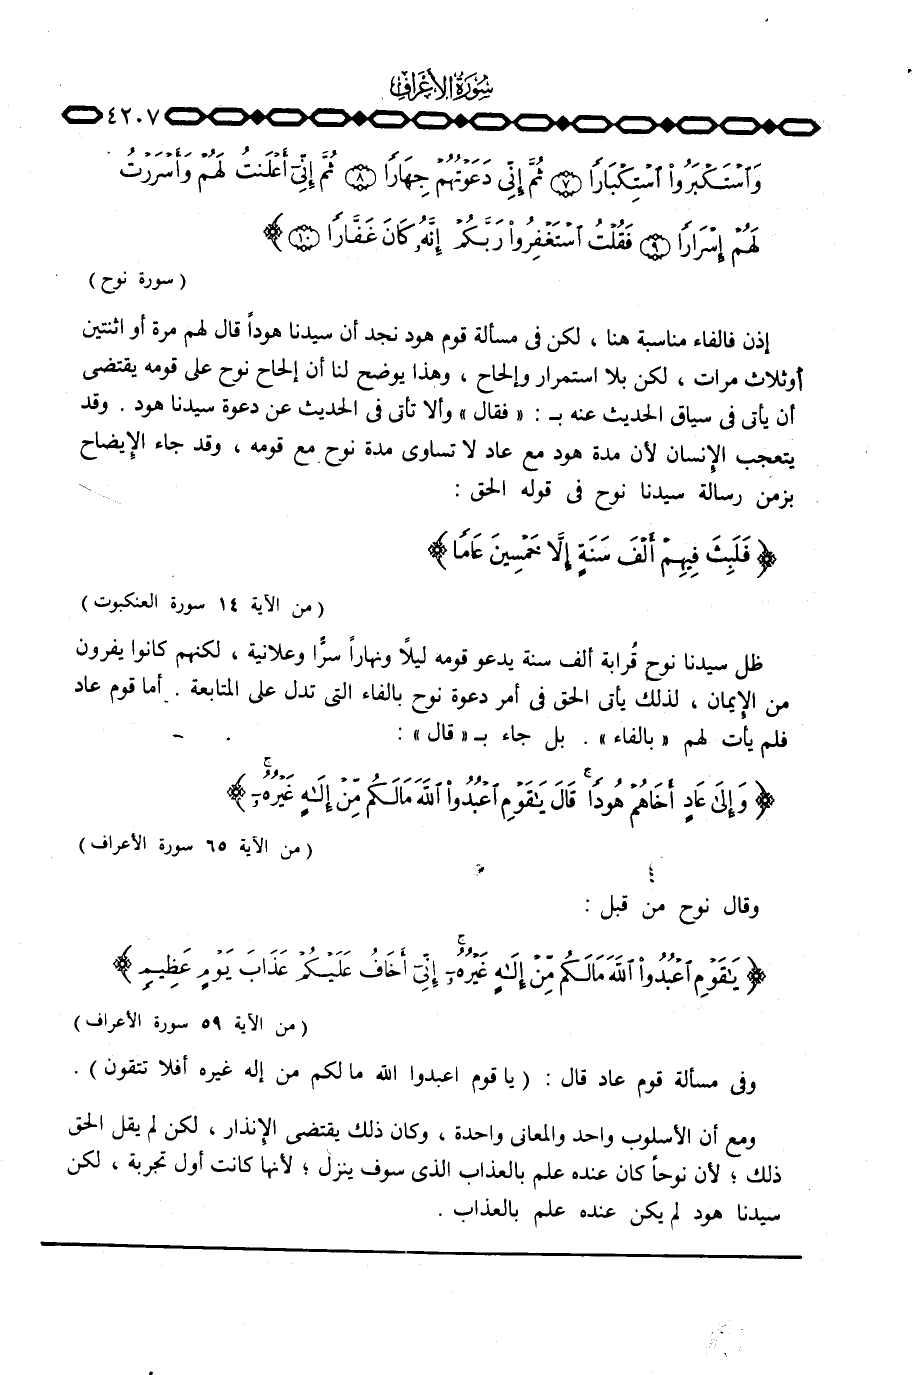 سُورَةُ الأَعْرَافِ
٤٢٠٧
وَٱسْتَكْبَرُوا۟ ٱسْتِكْبَارًا ٧ ثُمَّ إِنِّي دَعَوْتُهُمْ جِهَارًا ٨ ثُمَّ إِنِّىٓ أَعْلَنتُ لَهُمْ وَأَسْرَرْتُ
لَهُمْ إِسْرَارًا ٩ فَقُلْتُ ٱسْتَغْفِرُوا۟ رَبَّكُمْ إِنَّهُۥ كَانَ غَفَّارًا ١٠ ﴾
( سورة نوح )
إذن فالفاء مناسبة هنا ، لكن فى مسألة قوم هود نجد أن سيدنا هوداً قال لهم مرة أو اثنتين
أوثلاث مرات ، لكن بلا استمرار وإلحاح ، وهذا يوضح لنا أن إلحاح نوح على قومه يقتضى
أن يأتى فى سياق الحديث عنه بـ : « فقال » وألا تأتى فى الحديث عن دعوة سيدنا هود . وقد
يتعجب الإنسان لأن مدة هود مع عاد لا تساوى مدة نوح مع قومه ، وقد جاء الإيضاح
بزمن رسالة سيدنا نوح فى قوله الحق :
﴿ فَلَبِثَ فِيهِمْ أَلْفَ سَنَةٍ إِلَّا خَمْسِينَ عَامًا ﴾
( من الآية ١٤ سورة العنكبوت )
ظل سيدنا نوح قُرابة ألف سنة يدعو قومه ليلاً ونهاراً سرًّا وعلانية ، لكنهم كانوا يفرون
من الإيمان ، لذلك يأتى الحق فى أمر دعوة نوح بالفاء التى تدل على المتابعة . أما قوم عاد
فلم يأت لهم « بالفاء » . بل جاء بـ « قال » :
﴿ وَإِلَىٰ عَادٍ أَخَاهُمْ هُودًا ۚ قَالَ يَٰقَوْمِ ٱعْبُدُوا۟ ٱللَّهَ مَالَكُم مِّنْ إِلَٰهٍ غَيْرُهُۥٓ ۚ ﴾
( من الآية ٦٥ سورة الأعراف )
وقال نوح من قبل :
﴿ يَٰقَوْمِ ٱعْبُدُوا۟ ٱللَّهَ مَالَكُم مِّنْ إِلَٰهٍ غَيْرُهُۥٓ ۚ إِنِّىٓ أَخَافُ عَلَيْكُمْ عَذَابَ يَوْمٍ عَظِيمٍ ﴾
( من الآية ٥٩ سورة الأعراف )
وفى مسألة قوم عاد قال : ( يا قوم اعبدوا الله مالكم من إله غيره أفلا تتقون ) .
ومع أن الأسلوب واحد والمعانى واحدة ، وكان ذلك يقتضى الإنذار ، لكن لم يقل الحق
ذلك ؛ لأن نوحاً كان عنده علم بالعذاب الذى سوف ينزل ؛ لأنها كانت أول تجربة ، لكن
سيدنا هود لم يكن عنده علم بالعذاب .